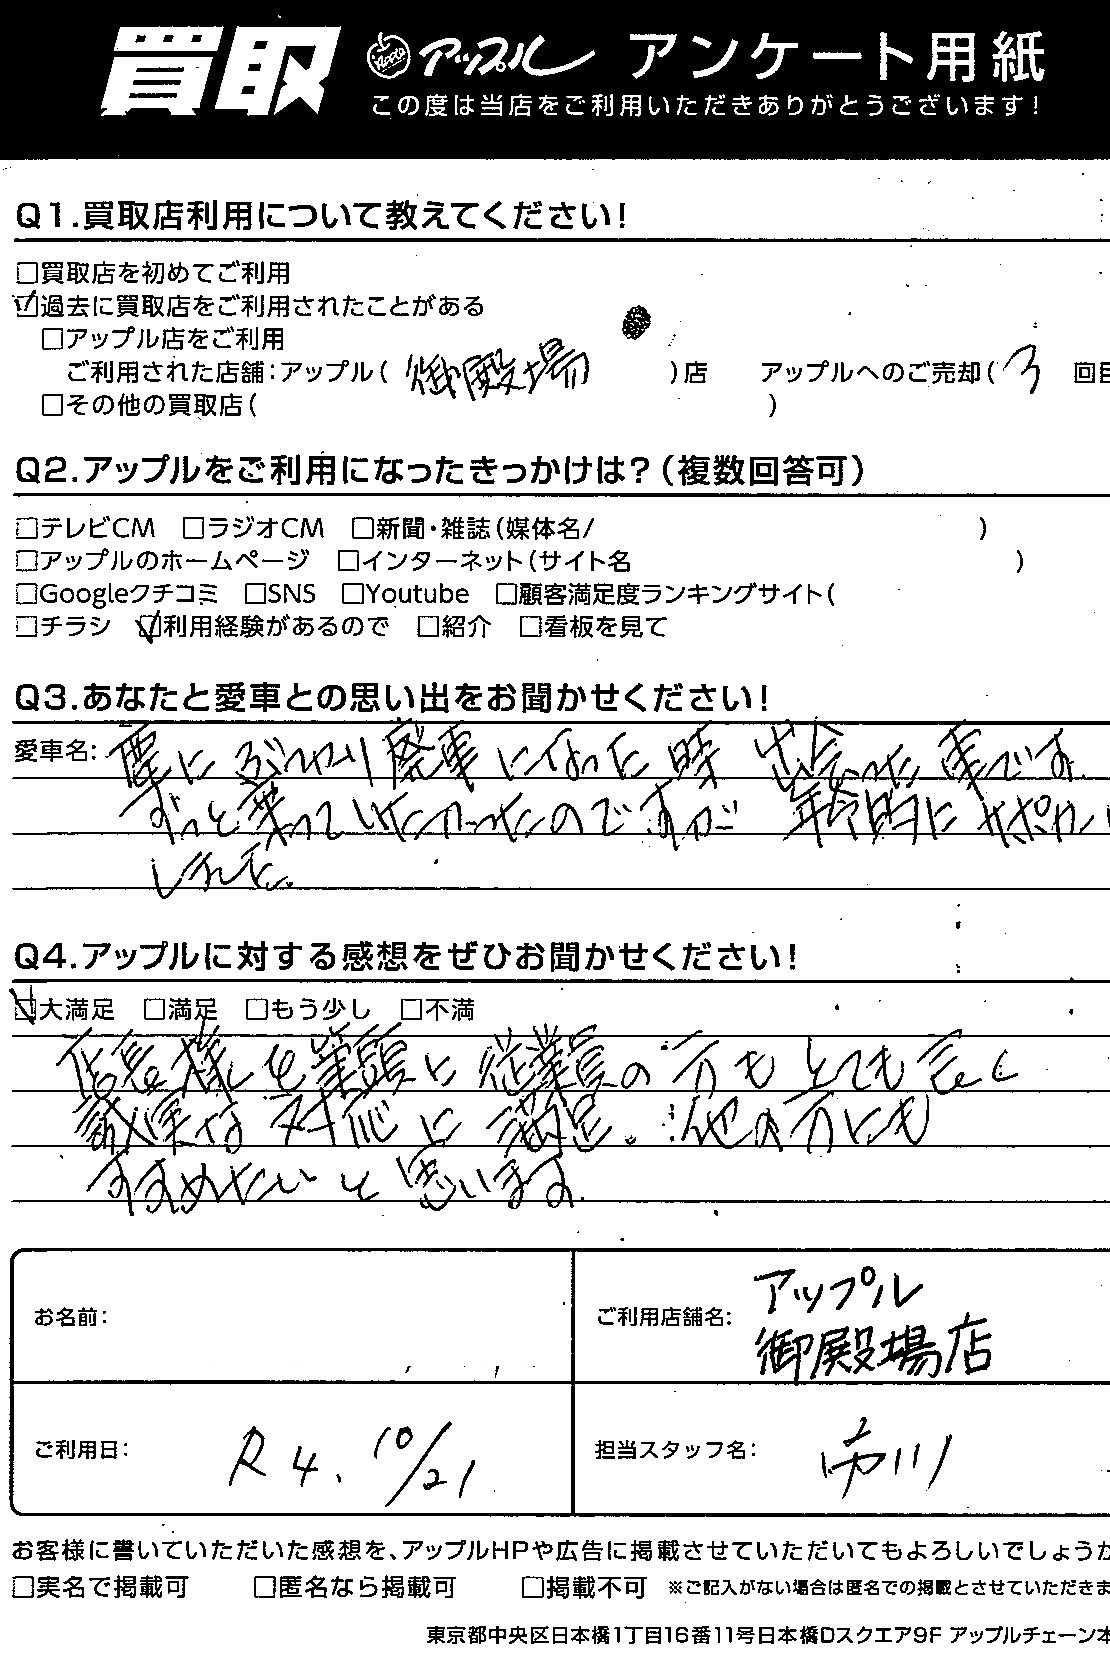 買取 Apple アップル アンケート用紙
この度は当店をご利用いただきありがとうございます!
Q1.買取店利用について教えてください!
□買取店を初めてご利用
☑過去に買取店をご利用されたことがある
□アップル店をご利用
ご利用された店舗:アップル( 御殿場 )店 アップルへのご売却( 3 回目
□その他の買取店( )
Q2.アップルをご利用になったきっかけは?(複数回答可)
□テレビCM □ラジオCM □新聞・雑誌(媒体名/ )
□アップルのホームページ □インターネット(サイト名 )
□Googleクチコミ □SNS □Youtube □顧客満足度ランキングサイト(
□チラシ ☑利用経験があるので □紹介 □看板を見て
Q3.あなたと愛車との思い出をお聞かせください!
愛車名: 車にぶつかり廃車になった時 出会った車です。
ずっと乗っていたかったのですが 年令的に サポカー
しました。
Q4.アップルに対する感想をぜひお聞かせください!
☑大満足 □満足 □もう少し □不満
店長様を筆頭に 従業員の方も とても良く
誠実な対応に 満足。他の方にも
すすめたいと思います。
お名前:
ご利用店舗名: アップル
御殿場店
ご利用日: R4. 10/21
担当スタッフ名: 市川
お客様に書いていただいた感想を、アップルHPや広告に掲載させていただいてもよろしいでしょうか
□実名で掲載可 □匿名なら掲載可 □掲載不可 ※ご記入がない場合は匿名での掲載とさせていただきま
東京都中央区日本橋1丁目16番11号日本橋Dスクエア9F アップルチェーン本